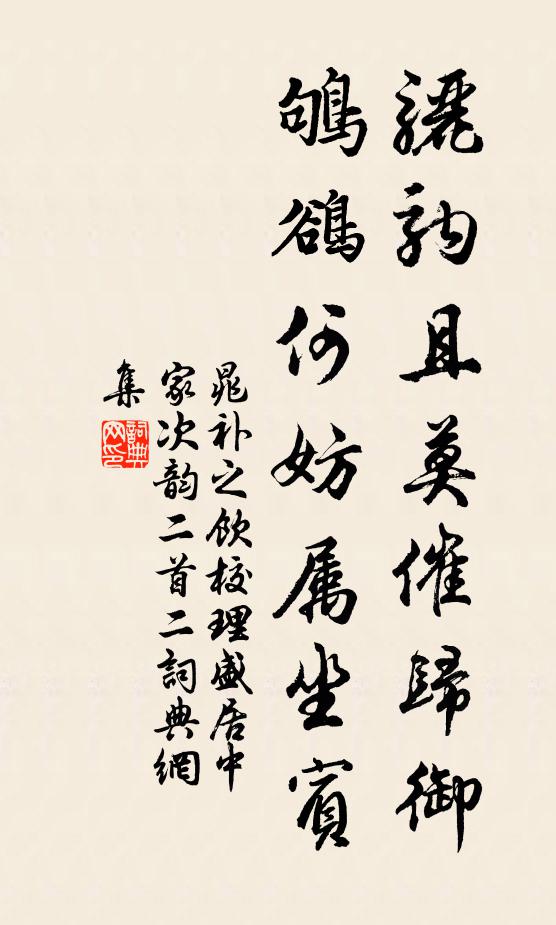 驪駒且莫催歸御
鴝鵒何妨属坐賓
晁补之飲校理盛居中
家次韵二首二詞典網
集
詞典
网印